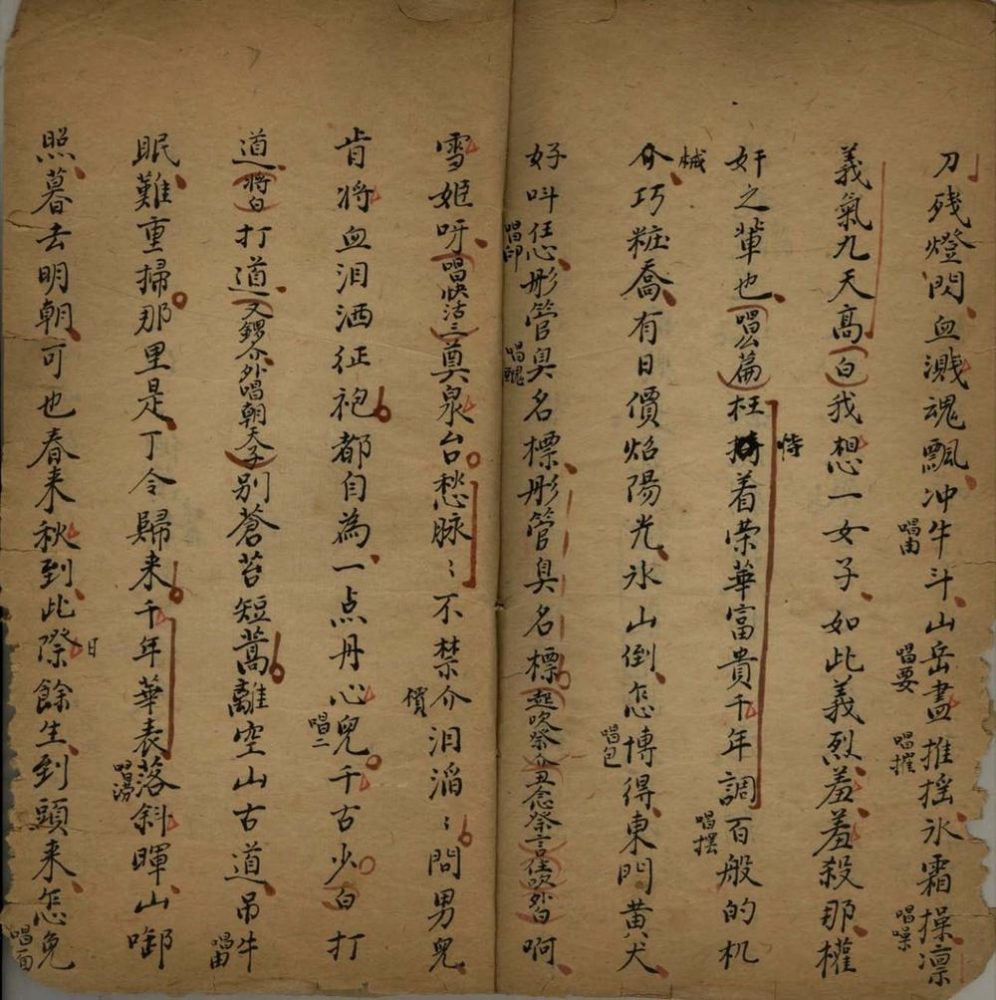 刀残燈閃血濺魂飄冲牛斗山岳盡推摇氷霜操凛
唱由
唱要
唱摧
唱噪
義氣九天髙白我想一女子如此義烈羞羞殺那權
奸之輩也唱么篇枉掎着荣華富貴千年調百般的机
恃
唱摆
械
介巧粧喬有日價焰陽光氷山倒怎博得東門黄犬
唱包
好呌任怂彤管臭名標彤管臭名標起吹祭介丑念祭言住吹外白啊
唱印
唱醜
雪姬呀唱快活三奠泉台愁脉〻不禁介泪滔〻問男兒
償
肯将血泪洒征袍都自為一点丹心兒千古少白打
唱二
道将白打道又鑼介外唱朝天子別蒼苔短蒿離空山古道吊牛
唱由
眠難重掃那里是丁令歸来千年華表落斜暉山啣
唱澇
照暮去明朝可也春来秋到此際餘生到頭来怎免
日
唱面